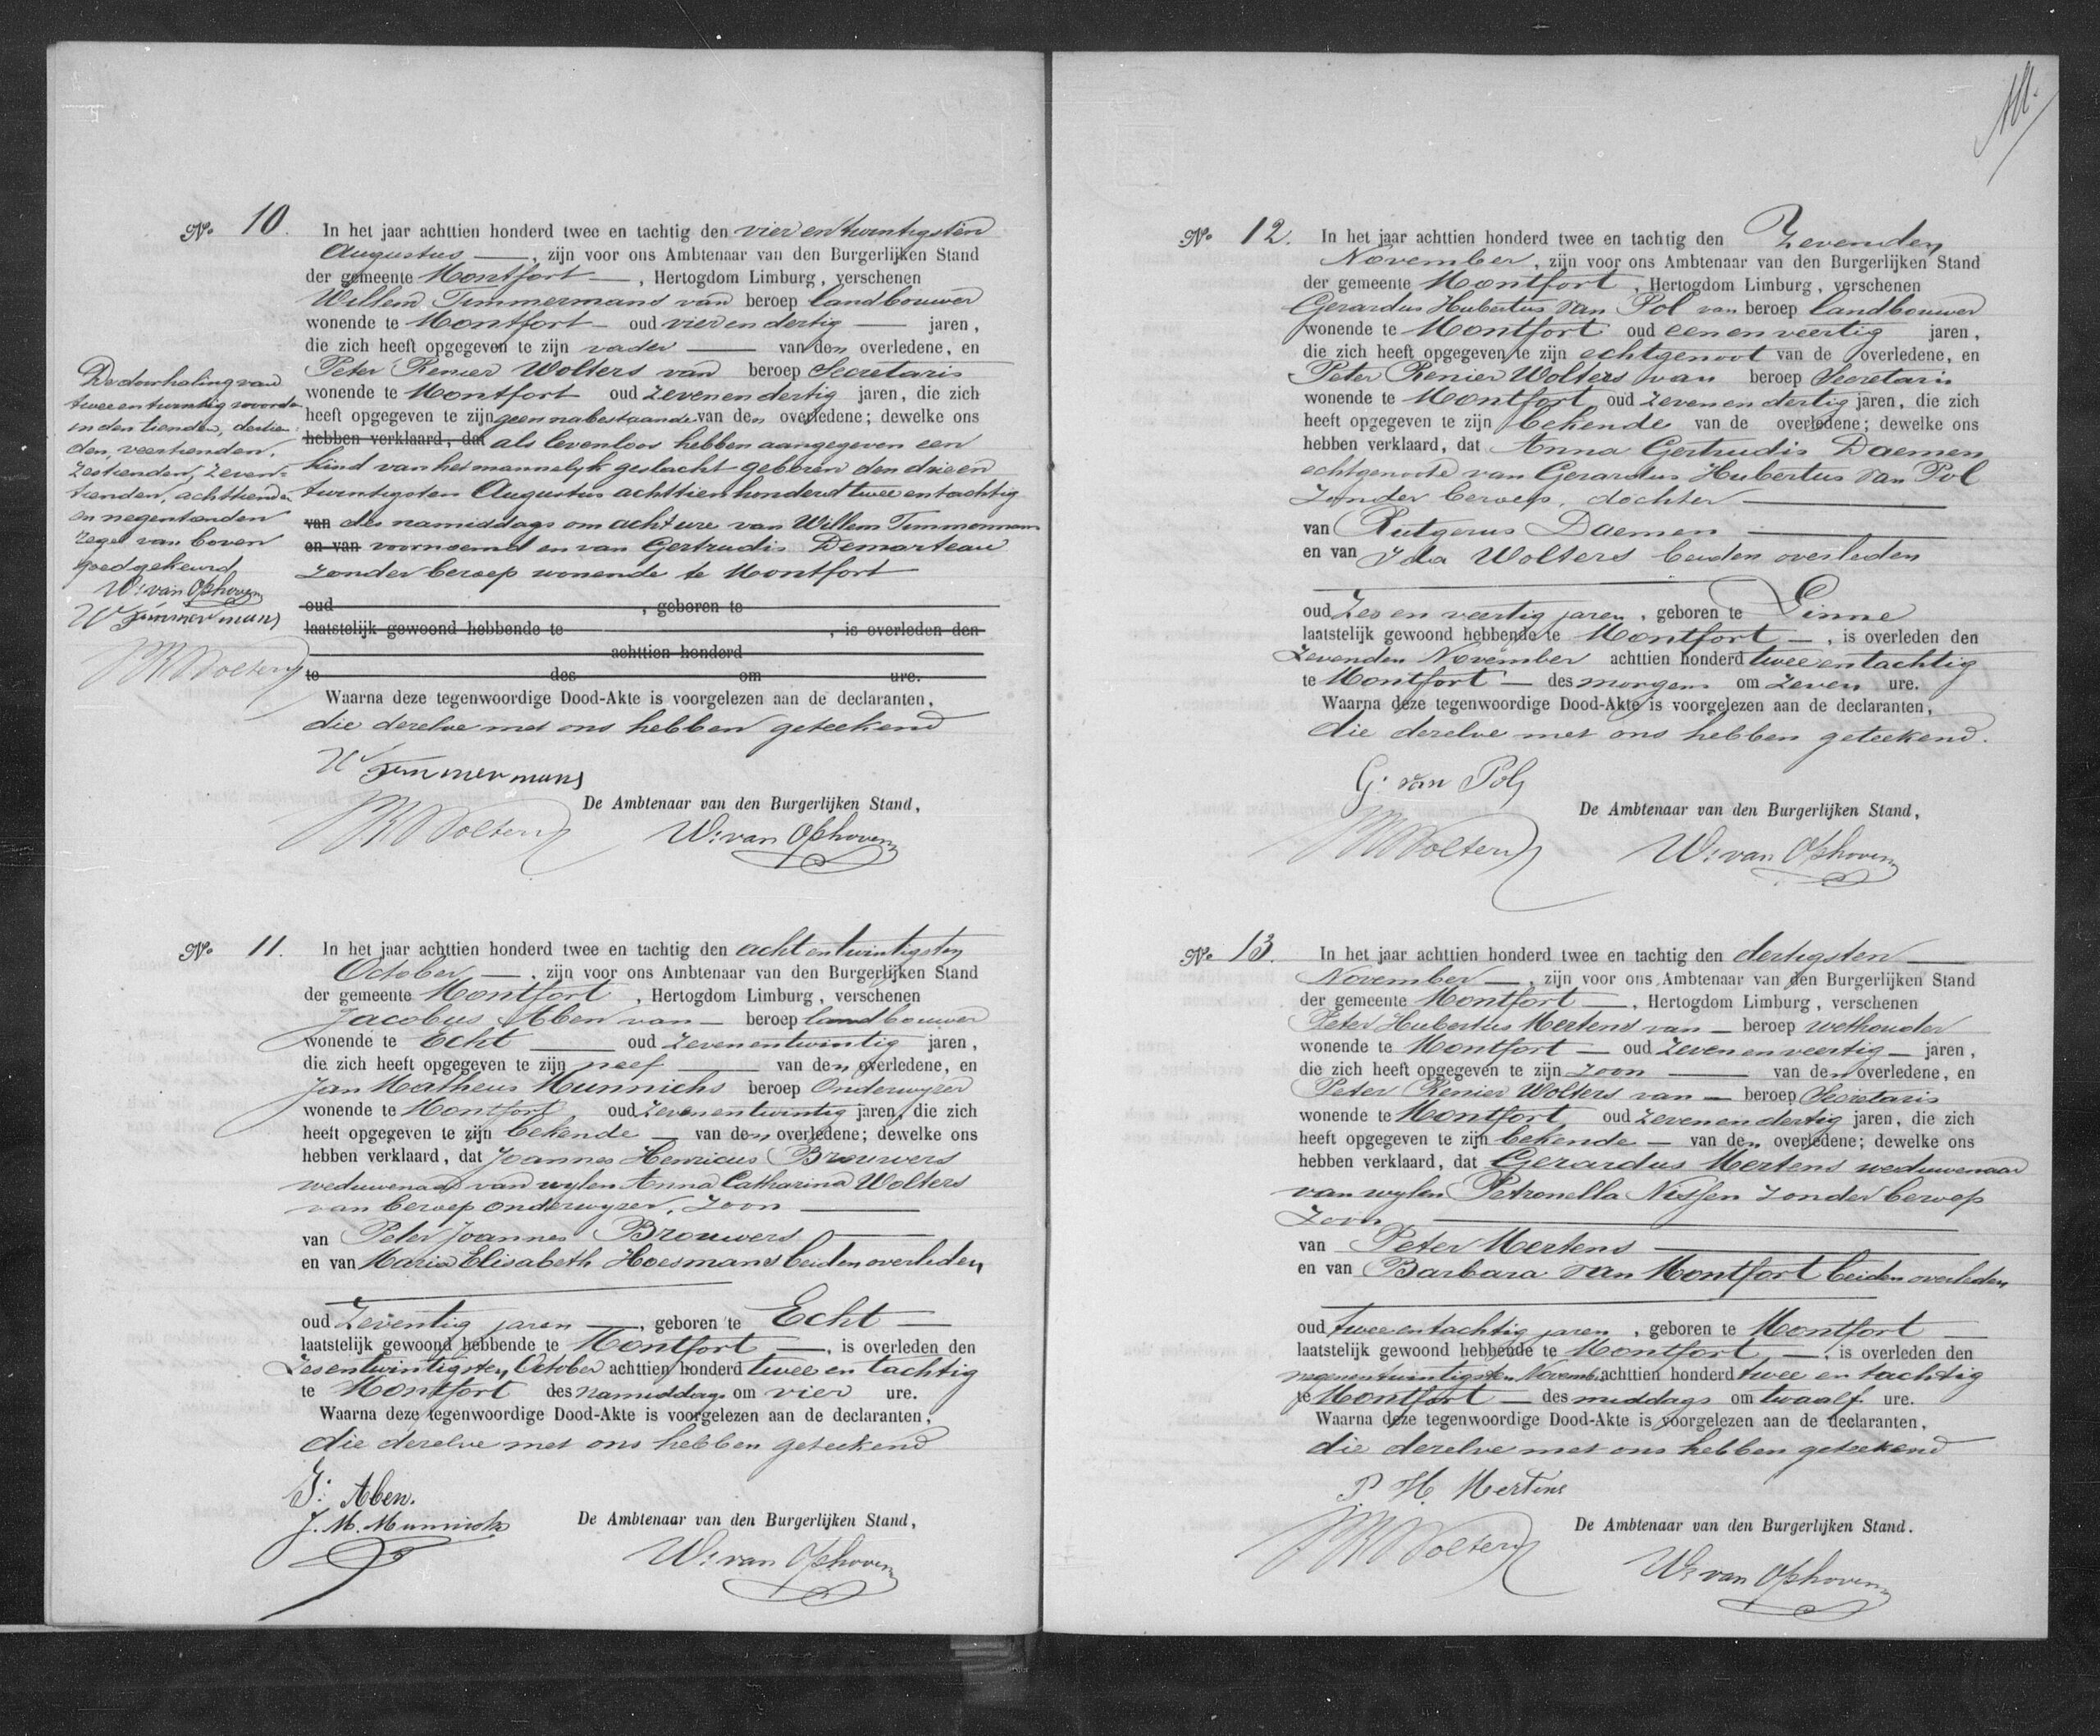 No. 10. In het jaar achttien honderd twee en tachtig den vier en twintigsten
Augustus —, zijn voor ons Ambtenaar van den Burgerlijken Stand
der gemeente Montfort —, Hertogdom Limburg, verschenen
Willem Timmermans van beroep landbouwer
wonende te Montfort — oud vier en dertig — jaren,
die zich heeft opgegeven te zijn vader — van den overledene, en
Peter Renier Wolters van beroep Secretaris
wonende te Montfort oud zevenendertig jaren, die zich
heeft opgegeven te zijn geen nabestaande van den overledene; dewelke ons
hebben verklaard, dat als levenloos hebben aangegeven een
kind van het mannelyk geslacht geboren den drie en
twintigsten Augustus achttien honderd twee en tachtig
van des namiddags om acht ure van Willem Timmermans
en van voornoemd en van Gertrudis Demarteau
zonder beroep wonende te Montfort
oud , geboren te
laatstelijk gewoond hebbende te , is overleden den
achttien honderd
te des om ure.
Waarna deze tegenwoordige Dood-Akte is voorgelezen aan de declaranten,
die dezelve met ons hebben geteekend
W Timmermans
De Ambtenaar van den Burgerlijken Stand,
PRWolters W. van Ophoven
De doorhaling van
twee en twintig woorden
in den tienden, dertien-
den, veertienden,
zestienden, zeven-
tienden, achttienden
en negentienden
regel van boven
goedgekeurd
W. van Ophoven
W Timmermans
PRWolters
No. 11. In het jaar achttien honderd twee en tachtig den acht en twintigsten
October —, zijn voor ons Ambtenaar van den Burgerlijken Stand
der gemeente Montfort, Hertogdom Limburg, verschenen
Jacobus Aben van — beroep landbouwer
wonende te Echt — oud zevenentwintig jaren,
die zich heeft opgegeven te zijn neef — van den overledene, en
Jan Matheus Munnichs beroep Onderwyzer
wonende te Montfort, oud zevenentwintig jaren, die zich
heeft opgegeven te zijn bekende — van den overledene; dewelke ons
hebben verklaard, dat Joannes Henricus Brouwers
weduwenaar van wylen Anna Catharina Wolters
van beroep onderwyzer, Zoon —
van Peter Joannes Brouwers —
en van Maria Elisabeth Hoesmans beiden overleden
oud Zeventig jaren —, geboren te Echt —
laatstelijk gewoond hebbende te Montfort —, is overleden den
Zesentwintigsten October achttien honderd twee en tachtig
te Montfort des namiddags om vier ure.
Waarna deze tegenwoordige Dood-Akte is voorgelezen aan de declaranten,
die dezelve met ons hebben geteekend
J. Aben.
J. M. Munnichs
De Ambtenaar van den Burgerlijken Stand,
W. van Ophoven
No. 12. In het jaar achttien honderd twee en tachtig den Zevenden
November, zijn voor ons Ambtenaar van den Burgerlijken Stand
der gemeente Montfort, Hertogdom Limburg, verschenen
Gerardus Hubertus van Pol van beroep landbouwer
wonende te Montfort oud een en veertig jaren,
die zich heeft opgegeven te zijn echtgenoot van de overledene, en
Peter Renier Wolters van beroep Secretaris
wonende te Montfort, oud zevenendertig jaren, die zich
heeft opgegeven te zijn bekende van de overledene; dewelke ons
hebben verklaard, dat Anna Gertrudis Daemen
echtgenoote van Gerardus Hubertus van Pol
zonder beroep, dochter —
van Rutgerus Daemen —
en van Ida Wolters beiden overleden
oud zes en veertig jaren, geboren te Linne
laatstelijk gewoond hebbende te Montfort —, is overleden den
Zevenden November achttien honderd twee en tachtig
te Montfort — des morgens om zeven ure.
Waarna deze tegenwoordige Dood-Akte is voorgelezen aan de declaranten,
die dezelve met ons hebben geteekend.
G. van Pol
De Ambtenaar van den Burgerlijken Stand,
PRWolters W. van Ophoven
No. 13. In het jaar achttien honderd twee en tachtig den dertigsten —
November —, zijn voor ons Ambtenaar van den Burgerlijken Stand
der gemeente Montfort —, Hertogdom Limburg, verschenen
Peter Hubertus Mertens van — beroep wethouder
wonende te Montfort — oud zeven en veertig — jaren,
die zich heeft opgegeven te zijn zoon — van den overledene, en
Peter Renier Wolters van — beroep Secretaris
wonende te Montfort oud zevenendertig jaren, die zich
heeft opgegeven te zijn bekende — van den overledene; dewelke ons
hebben verklaard, dat Gerardus Mertens weduwenaar
van wylen Petronella Nissen zonder beroep
Zoon —
van Peter Mertens —
en van Barbara van Montfort beiden overleden
oud twee en tachtig jaren, geboren te Montfort —
laatstelijk gewoond hebbende te Montfort —, is overleden den
negenentwintigsten Novemb. achttien honderd twee en tachtig
te Montfort — des middags om twaalf ure.
Waarna deze tegenwoordige Dood-Akte is voorgelezen aan de declaranten,
die dezelve met ons hebben geteekend
P. H. Mertens
De Ambtenaar van den Burgerlijken Stand.
PRWolters W. van Ophoven